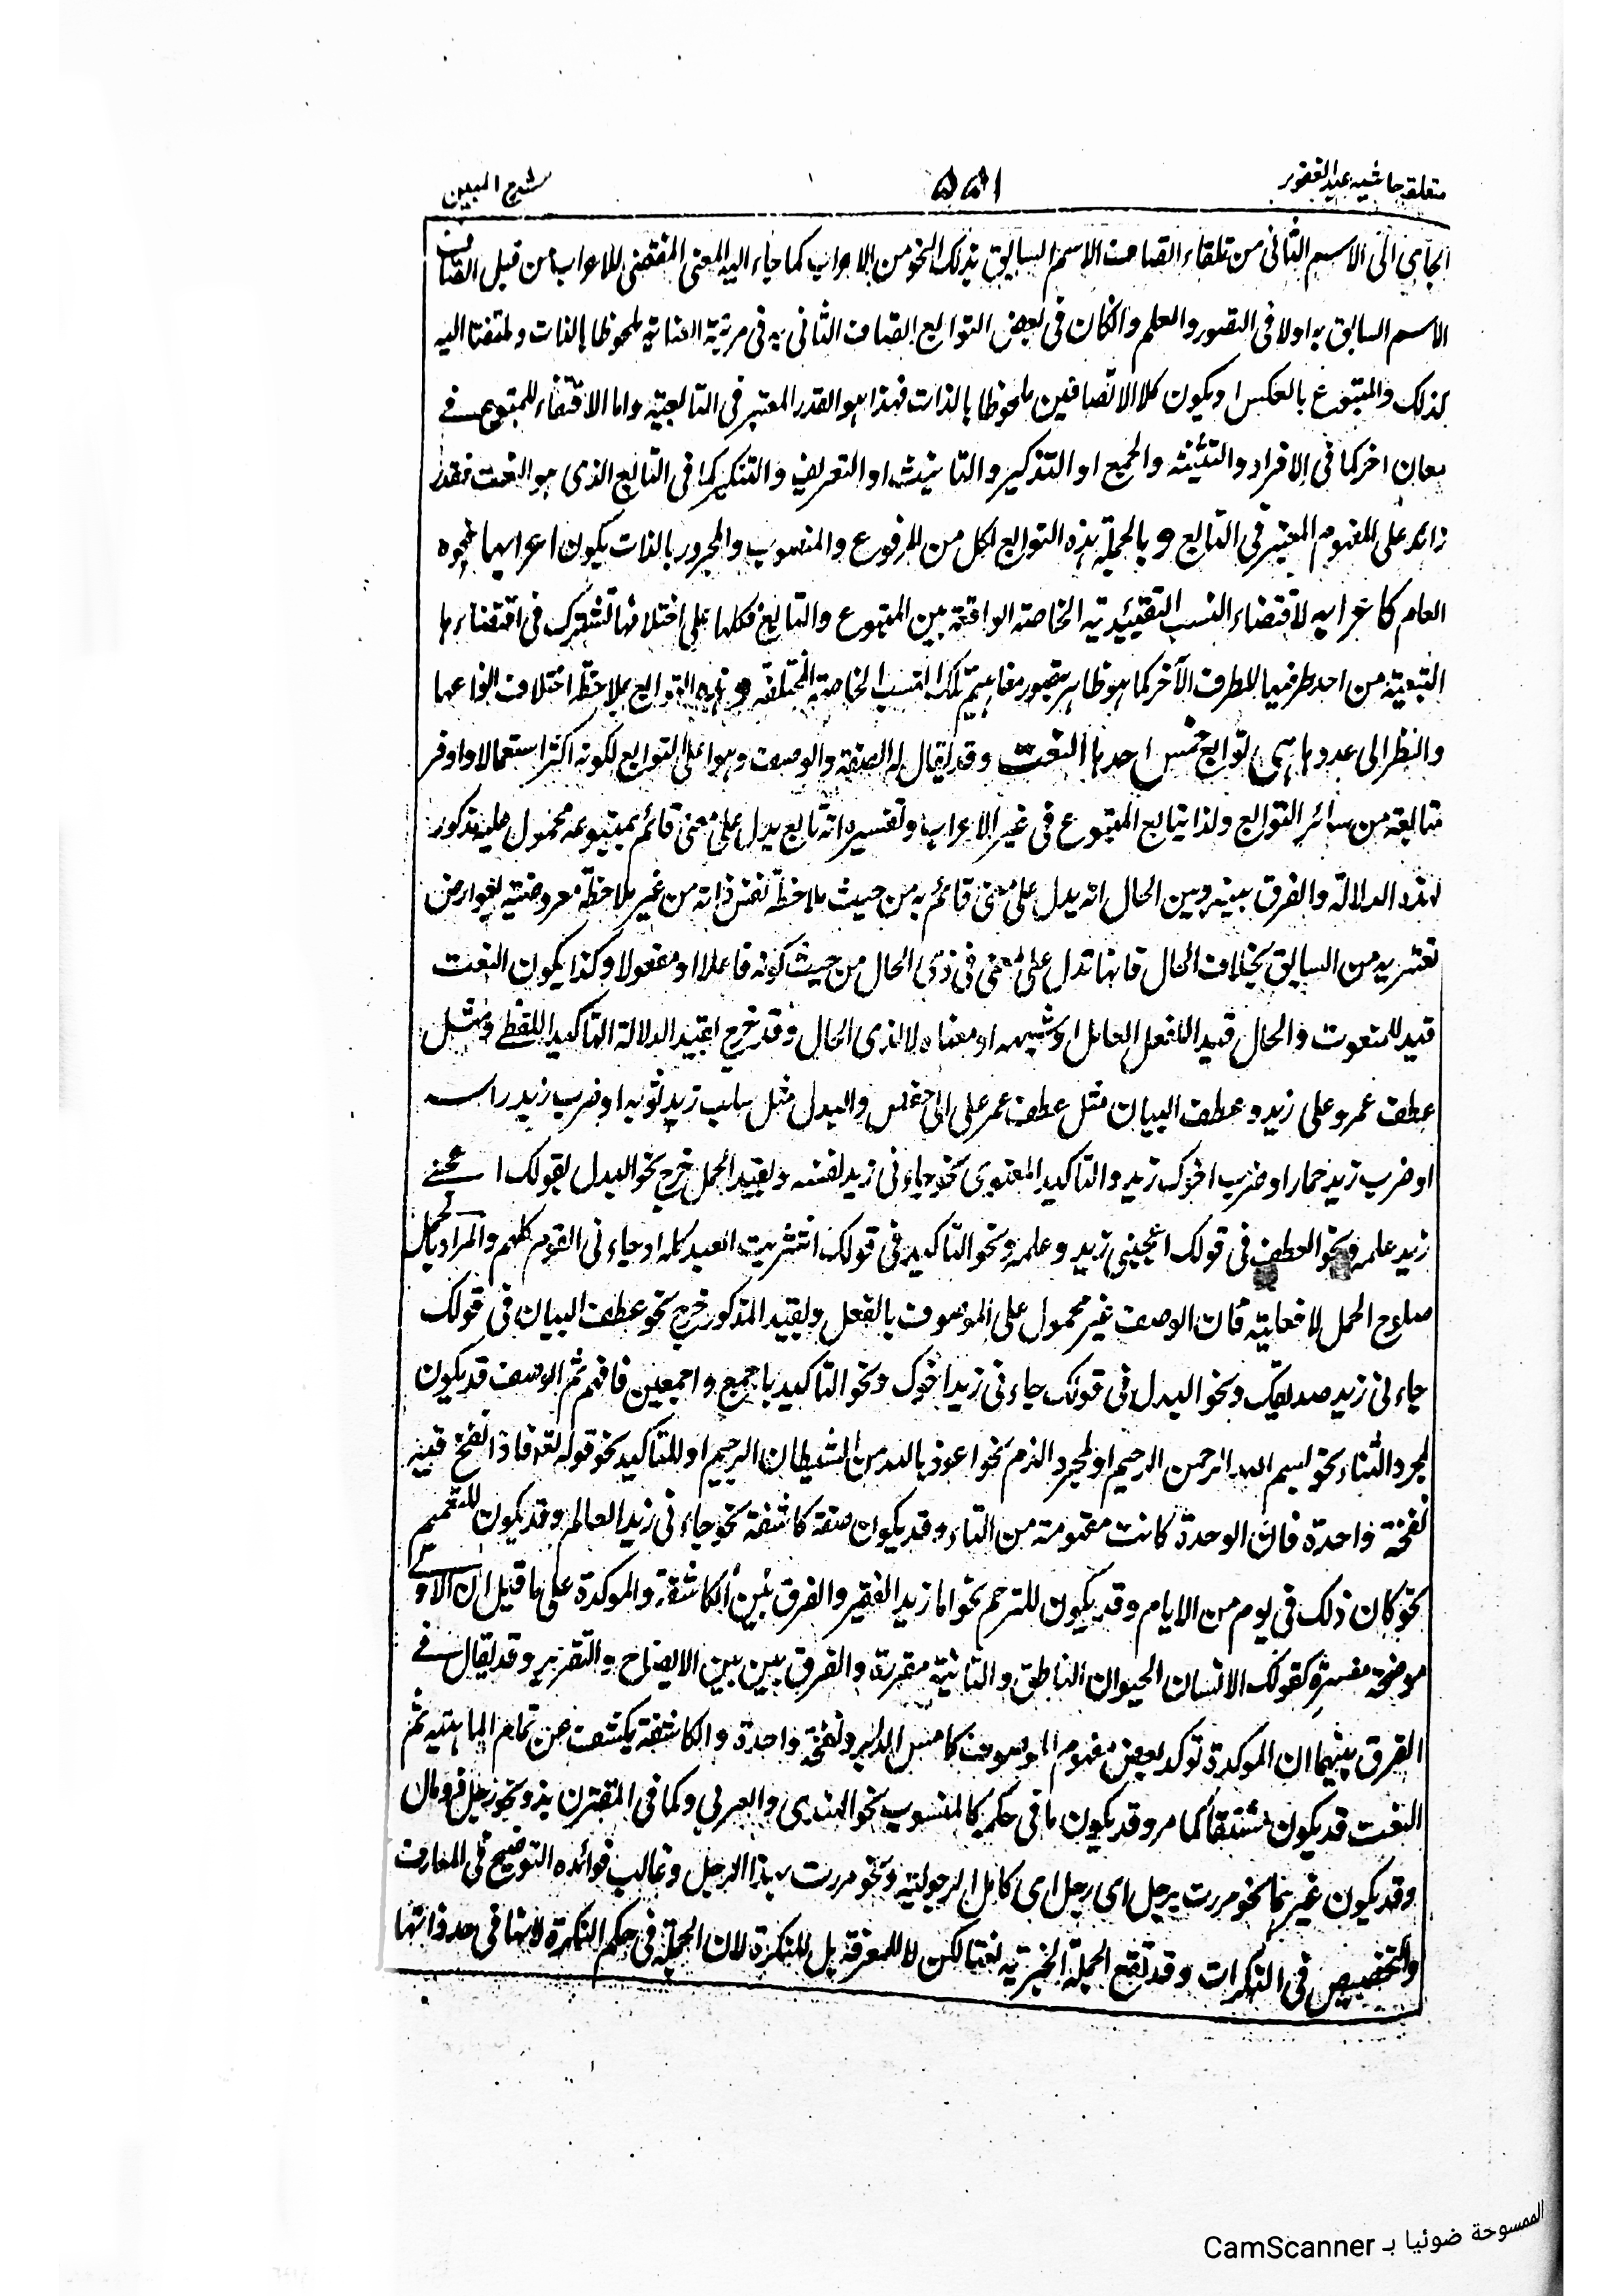 متعلقہ حاشیہ عبد الغفور
۱۵۵
شرح المبین
الجاى الى الاسم الثانى من تلقاء اتصاف الاسم السابق بذلك النحو من الاعراب كما جاء اليه المعنى المقتضى للاعراب من قبل اتصاف
الاسم السابق به اولا فى التصور والعلم والكان فى بعض التوابع اتصاف الثانى به فى مرتبة العناية ملحوظا بالذات وملتفتا اليه
كذلك والمتبوع بالعكس او يكون كلا الاتصافين ملحوظا بالذات فهذا هو القدر المعتبر فى التابعية واما الاقتفاء للمتبوع فے
معان اخر كما فى الافراد والتثنية والجمع او التذكير والتانيث او التعريف والتنكير كما فى التابع الذى هو النعت فقدر
زائد على المفهوم المعتبر فى التابع و بالجملة هذه التوابع لكل من المرفوع والمنصوب والمجرور بالذات يكون اعرابها نحوه
العام كاعرابه لاقتضاء النسب التقييدية الخاصة الواقعة بين المتبوع والتابع فكلها على اختلافها تشترك فى اقتضاءها
التبعية من احد طرفيها للطرف الآخر كما هو ظاهر بتصور مفاهيم تلك النسب الخاصة المختلفة و هذه التوابع بملاحظة اختلاف انواعها
والنظر الى عددها سمى توابع خمس احدها النعت وقد يقال له الصفة والوصف وهو اعلى التوابع لكونه اكثر استعمالا واوفر
متابعة من سائر التوابع ولذا يتابع المتبوع فى غير الاعراب وتفسيره انه تابع يدل على معنى قائم بمتبوعه محمول عليه مذكور
لهذه الدلالة والفرق بينه وبين الحال انه يدل على معنى قائم به من حيث ملاحظة نفس ذاته من غير ملاحظة معروضيته لعوارض
تعتريه من السابق بخلاف الحال فانها تدل على معنى فى ذى الحال من حيث كونه فاعلا او مفعولا وكذا يكون النعت
قيد للمنعوت والحال قيدا للفعل العامل او شبيهه او معناه لا لذى الحال وقد خرج بقيد الدلالة التاكيد اللفظے ومثل
عطف عمرو على زيد وعطف البيان مثل عطف عمر على ابى حفص والبدل مثل سلب زيد ثوبه او ضرب زيد راسه
او ضرب زيد حمار او ضرب اخوك زيد والتاكيد المعنوى نحو جاءنى زيد نفسه وبقيد الحمل خرج نحو البدل بقولك اعجبنے
زيد علمه ونحو العطف فى قولك اعجبنى زيد وعلمه ونحو التاكيد فى قولك اشتريت العبد كله او جاءنى القوم كلهم والمراد بالحمل
صلوح الحمل لا فعليته فان الوصف غير محمول على الموصوف بالفعل وبقيد المذكور خرج نحو عطف البيان فى قولك
جاءنى زيد صديقك ونحو البدل فى قولك جاءنى زيد اخوك ونحو التاكيد باجمع واجمعين فافهم ثم الوصف قد يكون
لمجرد الثناء نحو بسم الله الرحمن الرحيم او لمجرد الذم نحو اعوذ بالله من الشيطان الرجيم او للتاكيد نحو قوله تعه فاذا نفخ فيه
نفخة واحدة فان الوحدة كانت مفهومة من التاء وقد يكون صفة كاشفة نحو جاءنى زيد العالم وقد يكون للتعميم
نحو كان ذلك فى يوم من الايام وقد يكون للترحم نحو انا زيد الفقير والفرق بين الكاشفة والموكدة على ما قيل ان الاولے
موضحة مفسرة كقولك الانسان الحيوان الناطق والثانية مقررة والفرق بين بين الايضاح والتقرير وقد يقال فے
الفرق بينهما ان الموكدة توكد بعض مفهوم الموصوف كامس الدابر ونفخة واحدة والكاشفة يكشف عن تمام الماهية ثم
النعت قد يكون مشتقا كما مر وقد يكون ما فى حكمه كالمنسوب نحو الهندى والعربى وكما فى المقترن بذو نحو رجل ذو مال
وقد يكون غيرهما نحو مررت برجل اى رجل اى كامل الرجولية ونحو مررت بهذا الرجل وغالب فوائده التوضيح فى المعارف
والتخصيص فى النكرات وقد تقع الجملة الخبرية نعتا لكن لا للمعرفة بل للنكرة لان الجملة فى حكم النكرة لانها فى حد ذاتها
الممسوحة ضوئيا بـ CamScanner